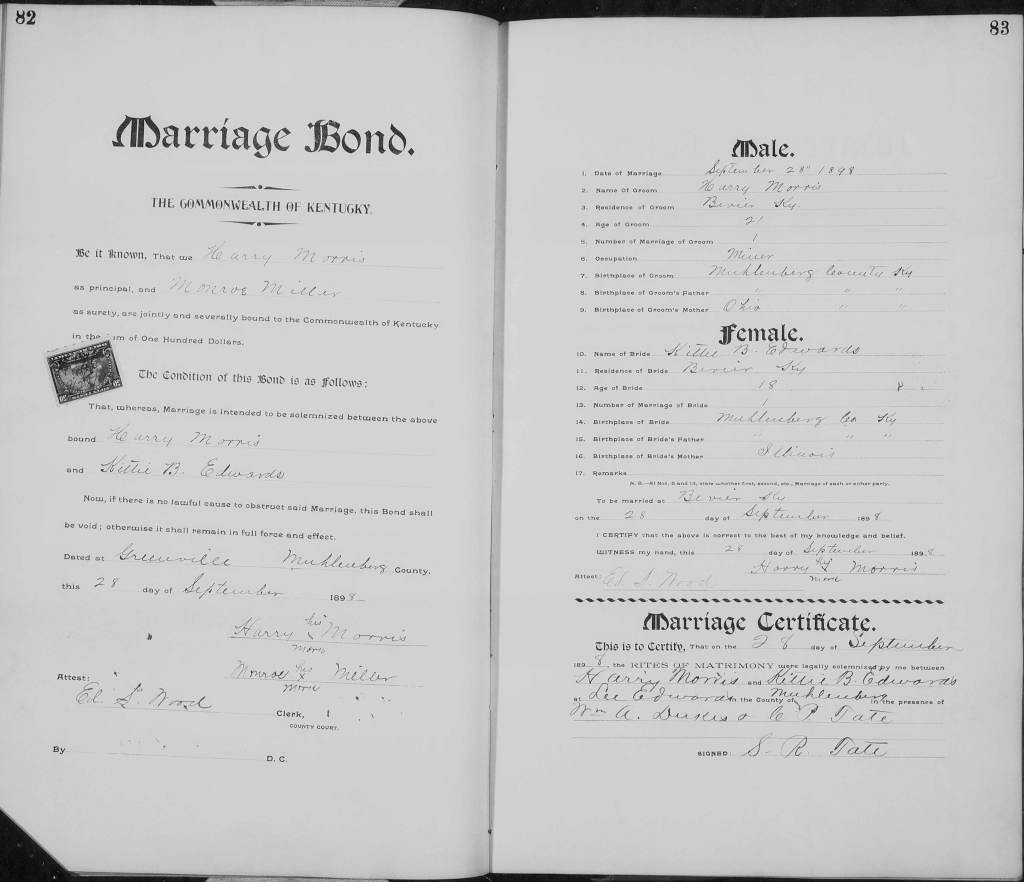 82
Marriage Bond.
THE COMMONWEALTH OF KENTUCKY.
Be it Known, That we Harry Morris
as principal, and Monroe Miller
as surety, are jointly and severally bound to the Commonwealth of Kentucky
in the sum of One Hundred Dollars.
The Condition of this Bond is as Follows:
That, whereas, Marriage is intended to be solemnized between the above
bound Harry Morris
and Kittie B. Edwards
Now, if there is no lawful cause to obstruct said Marriage, this Bond shall
be void; otherwise it shall remain in full force and effect.
Dated at Greenville Muhlenberg County,
this 28 day of September 1898.
Harry his x Morris
mark
Monroe his x Miller
mark
Attest:
Ed. S. Wood Clerk,
COUNTY COURT.
By D. C.
83
Male.
1. Date of Marriage September 28" 1898
2. Name Of Groom Harry Morris
3. Residence of Groom Bevier Ky.
4. Age of Groom 21
5. Number of Marriage of Groom 1
6. Occupation Miner
7. Birthplace of Groom Muhlenberg County Ky
8. Birthplace of Groom's Father " " "
9. Birthplace of Groom's Mother Ohio " "
Female.
10. Name of Bride Kittie B. Edwards
11. Residence of Bride Bevier Ky
12. Age of Bride 18
13. Number of Marriage of Bride 1
14. Birthplace of Bride Muhlenberg Co Ky
15. Birthplace of Bride's Father " " "
16. Birthplace of Bride's Mother Illinois
17. Remarks
N. B.—At Nos. 5 and 13, state whether first, second, etc., Marriage of each or either party.
To be married at Bevier Ky
on the 28 day of September 1898
I CERTIFY that the above is correct to the best of my knowledge and belief.
WITNESS my hand, this 28 day of September 1898
Harry his x Morris
mark
Attest: Ed. S. Wood
Marriage Certificate.
This is to Certify, That on the 28 day of September
1898, the RITES OF MATRIMONY were legally solemnized by me between
Harry Morris and Kittie B. Edwards
at Lee Edwards in the County of Muhlenberg in the presence of
Wm A. Dukes & C P Tate
SIGNED: S. R. Tate